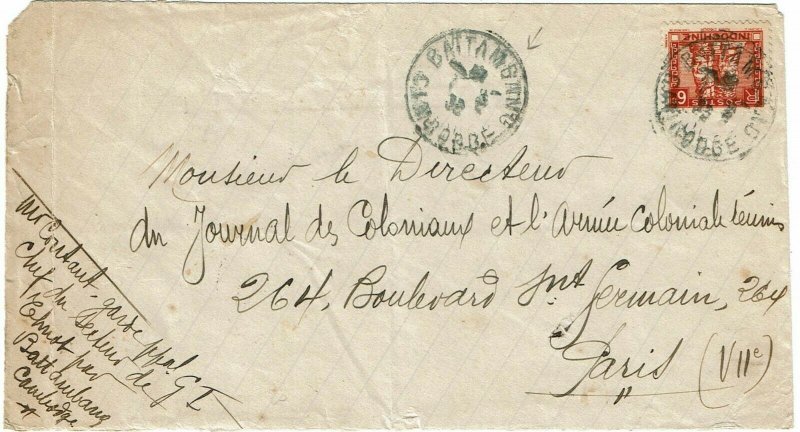 BATTAMBANG
CAMBODGE
INDOCHINE
POSTES
6
BATTAMBANG
CAMBODGE
Monsieur le Directeur
du Journal des Coloniaux et l'Armée Coloniale réunis
264, Boulevard Snt Germain, 264
Paris (VIIe)
Mr garde ppal
Chef du Secteur de GI
par
Battambang
Cambodge